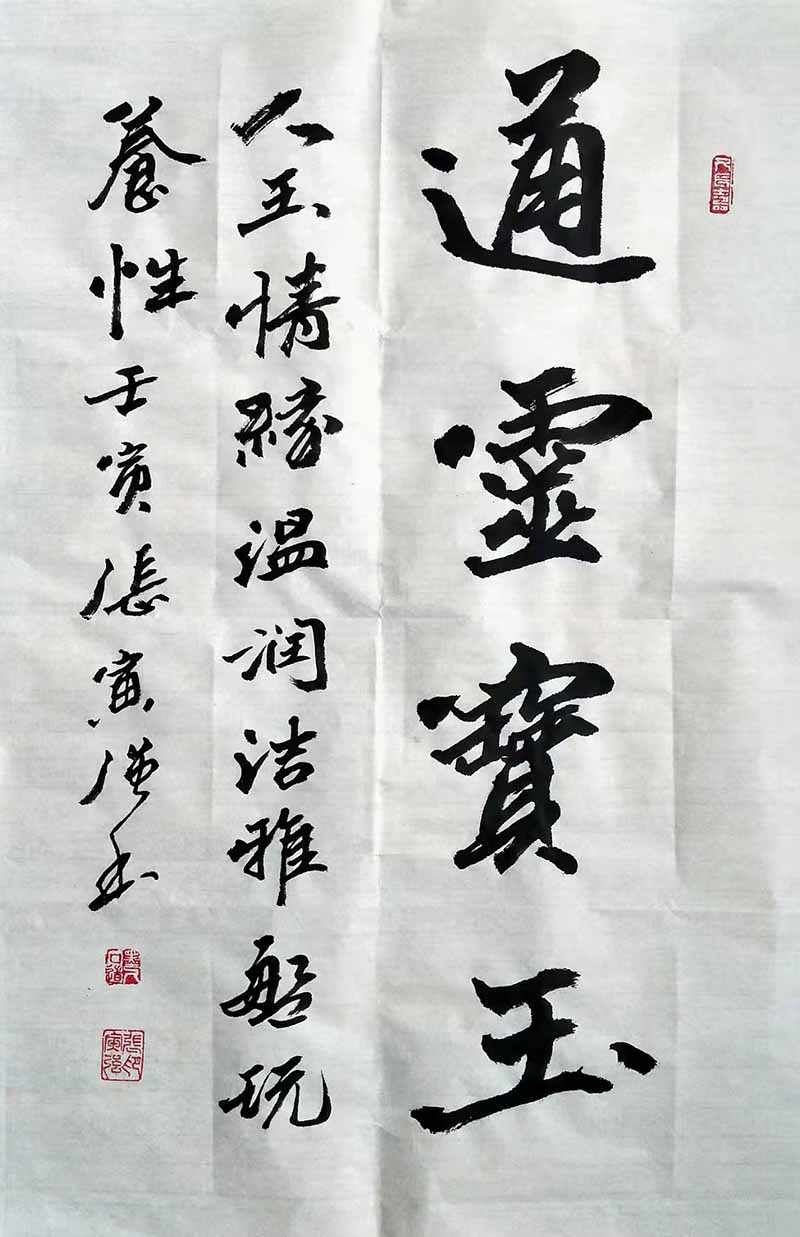 通靈寶玉
人玉情緣温润洁雅盤玩
養性壬寅張寅强书